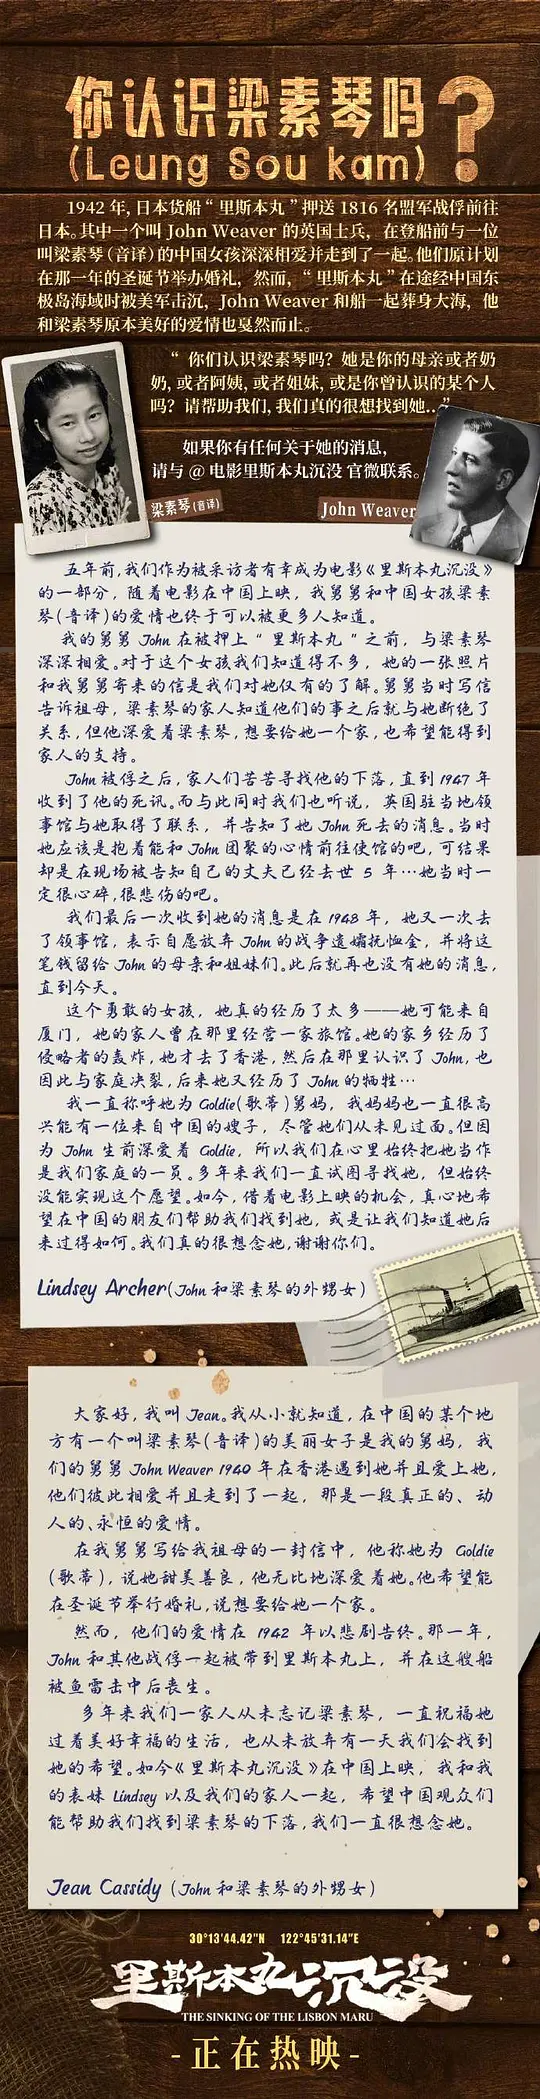 你认识梁素琴吗?
(Leung Sou kam)
1942 年, 日本货船“里斯本丸”押送 1816 名盟军战俘前往
日本。其中一个叫 John Weaver 的英国士兵, 在登船前与一位
叫梁素琴(音译)的中国女孩深深相爱并走到了一起。他们原计划
在那一年的圣诞节举办婚礼, 然而, “里斯本丸”在途经中国东
极岛海域时被美军击沉, John Weaver 和船一起葬身大海, 他
和梁素琴原本美好的爱情也戛然而止。
“你们认识梁素琴吗? 她是你的母亲或者奶
奶, 或者阿姨, 或者姐妹, 或是你曾认识的某个人
吗? 请帮助我们, 我们真的很想找到她...”
如果你有任何关于她的消息,
请与 @ 电影里斯本丸沉没 官微联系。
梁素琴(音译)
John Weaver
五年前, 我们作为被采访者有幸成为电影《里斯本丸沉没》
的一部分, 随着电影在中国上映, 我舅舅和中国女孩梁素
琴(音译)的爱情也终于可以被更多人知道。
我的舅舅 John 在被押上“里斯本丸”之前, 与梁素琴
深深相爱。对于这个女孩我们知道得不多, 她的一张照片
和我舅舅寄来的信是我们对她仅有的了解。舅舅当时写信
告诉祖母, 梁素琴的家人知道他们的事之后就与她断绝了
关系, 但他深爱着梁素琴, 想要给她一个家, 也希望能得到
家人的支持。
John 被俘之后, 家人们苦苦寻找他的下落, 直到 1947 年
收到了他的死讯。而与此同时我们也听说, 英国驻当地领
事馆与她取得了联系, 并告知了她 John 死去的消息。当时
她应该是抱着能和 John 团聚的心情前往使馆的吧, 可结果
却是在现场被告知自己的丈夫已经去世 5 年…她当时一
定很心碎, 很悲伤的吧。
我们最后一次收到她的消息是在 1948 年, 她又一次去
了领事馆, 表示自愿放弃 John 的战争遗孀抚恤金, 并将这
笔钱留给 John 的母亲和姐妹们。此后就再也没有她的消息,
直到今天。
这个勇敢的女孩, 她真的经历了太多——她可能来自
厦门, 她的家人曾在那里经营一家旅馆。她的家乡经历了
侵略者的轰炸, 她才去了香港, 然后在那里认识了 John, 也
因此与家庭决裂, 后来她又经历了 John 的牺牲…
我一直称呼她为 Goldie(歌蒂)舅妈, 我妈妈也一直很高
兴能有一位来自中国的嫂子, 尽管她们从未见过面。但因
为 John 生前深爱着 Goldie, 所以我们在心里始终把她当作
是我们家庭的一员。多年来我们一直试图寻找她, 但始终
没能实现这个愿望。如今, 借着电影上映的机会, 真心地希
望在中国的朋友们帮助我们找到她, 或是让我们知道她后
来过得如何。我们真的很想念她, 谢谢你们。
Lindsey Archer(John 和梁素琴的外甥女)
大家好, 我叫 Jean。我从小就知道, 在中国的某个地
方有一个叫梁素琴(音译)的美丽女子是我的舅妈, 我
们的舅舅 John Weaver 1940 年在香港遇到她并且爱上她,
他们彼此相爱并且走到了一起, 那是一段真正的、动
人的、永恒的爱情。
在我舅舅写给我祖母的一封信中, 他称她为 Goldie
(歌蒂), 说她甜美善良, 他无比地深爱着她。他希望能
在圣诞节举行婚礼, 说想要给她一个家。
然而, 他们的爱情在 1942 年以悲剧告终。那一年,
John 和其他战俘一起被带到里斯本丸上, 并在这艘船
被鱼雷击中后丧生。
多年来我们一家人从未忘记梁素琴, 一直祝福她
过着美好幸福的生活, 也从未放弃有一天我们会找到
她的希望。如今《里斯本丸沉没》在中国上映, 我和我
的表妹 Lindsey 以及我们的家人一起, 希望中国观众们
能帮助我们找到梁素琴的下落, 我们一直很想念她。
Jean Cassidy (John 和梁素琴的外甥女)
30°13'44.42"N 122°45'31.14"E
里斯本丸沉没
THE SINKING OF THE LISBON MARU
-正在热映-